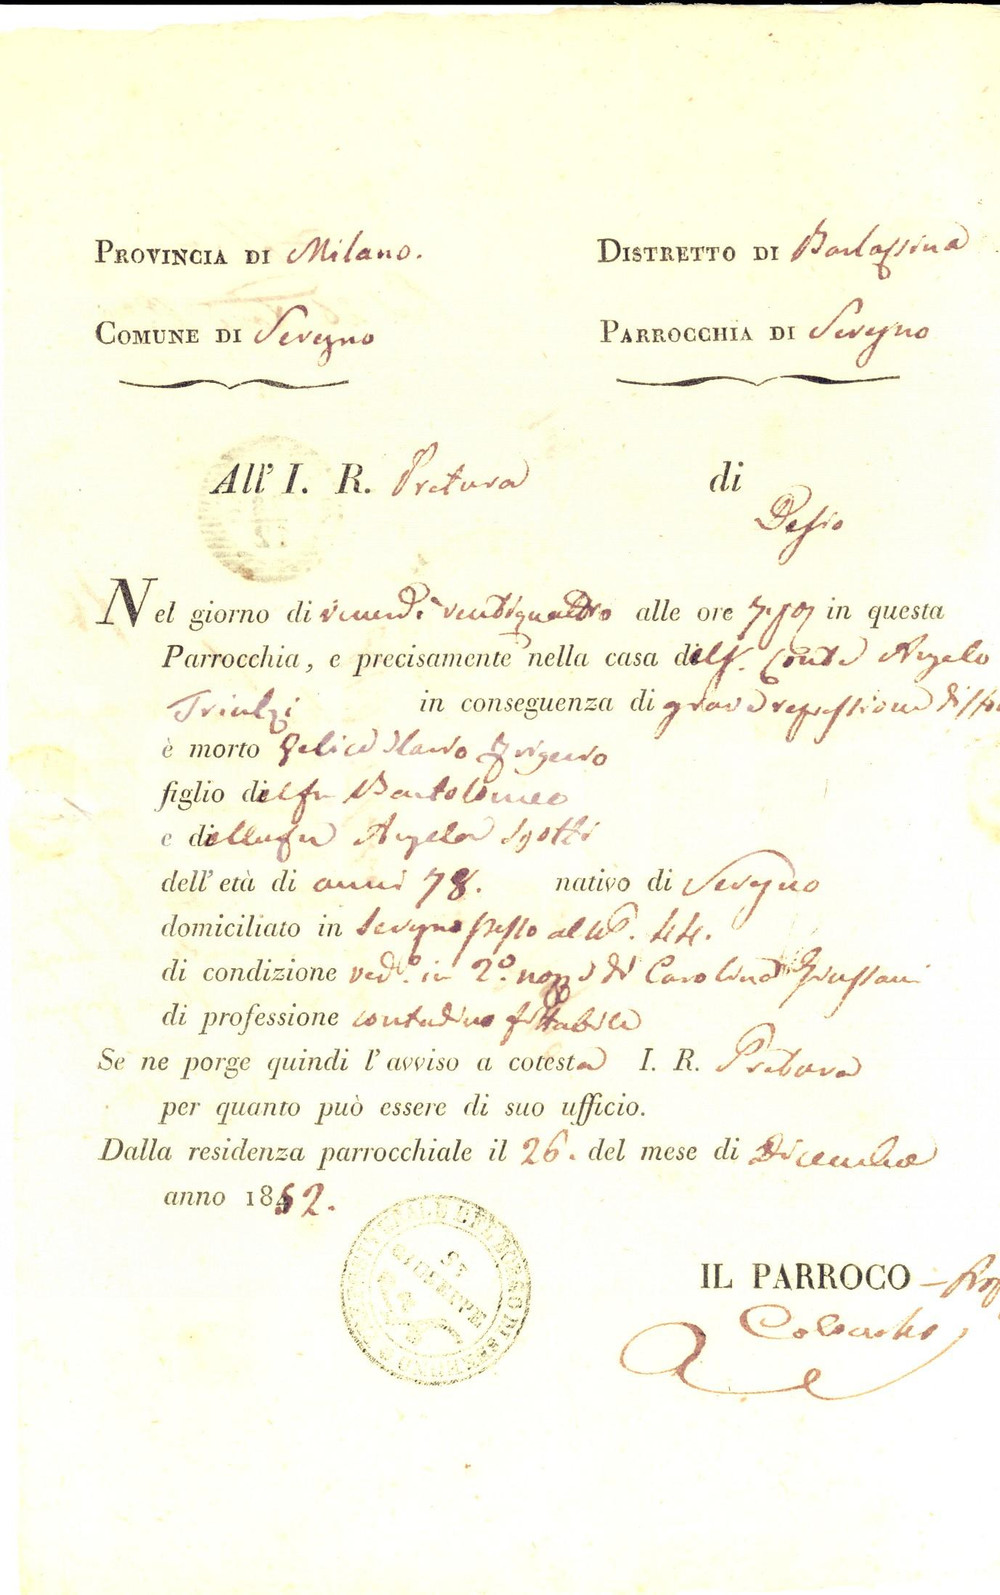 PROVINCIA DI Milano.
DISTRETTO DI Barlassina
COMUNE DI Seregno
PARROCCHIA DI Seregno
All' I. R. Pretura di
Desio
Nel giorno di venerdì ventiquattro alle ore in questa
Parrocchia, e precisamente nella casa del Conte Angelo
Triulzi in conseguenza di grave
è morto Felice Ilario Frigerio
figlio del fu Bartolomeo
e della fu Angela
dell' età di anni 78. nativo di Seregno
domiciliato in Seregno stesso al N°. 44.
di condizione ved.° in 2.° nozze di Carolina Giussani
di professione contadino fittabile
Se ne porge quindi l' avviso a cotesta I. R. Pretura
per quanto può essere di suo ufficio.
Dalla residenza parrocchiale il 26. del mese di Dicembre
anno 1852.
S. GIUSEPPE
IL PARROCO – Prop
Colombo